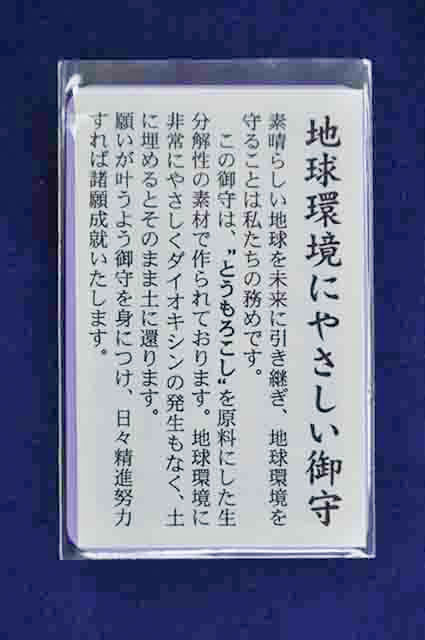 地球環境にやさしい御守
素晴らしい地球を未来に引き継ぎ、地球環境を
守ることは私たちの務めです。
この御守は、"とうもろこし"を原料にした生
分解性の素材で作られております。地球環境に
非常にやさしくダイオキシンの発生もなく、土
に埋めるとそのまま土に還ります。
願いが叶うよう御守を身につけ、日々精進努力
すれば諸願成就いたします。